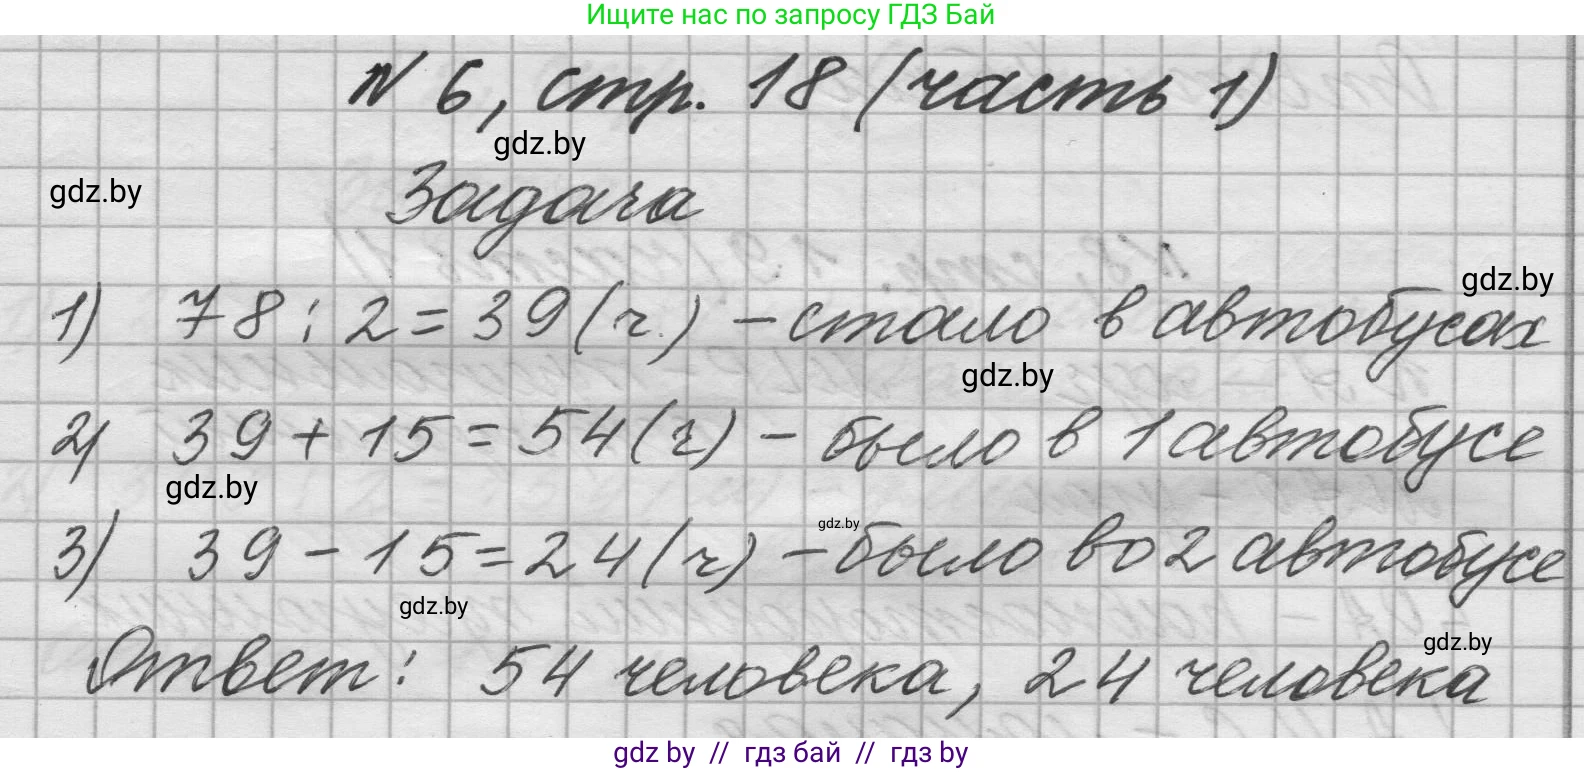 Ищите нас по запросу ГДЗ Бай
№ 6, стр. 18 (часть 1)
gdz.by
gdz.by
Задача
gdz.by
1) 78 : 2 = 39 (ч.) – стало в автобусах
gdz.by
2) 39 + 15 = 54 (ч) – было в 1 автобусе
gdz.by
gdz.by
3) 39 – 15 = 24 (ч) – было во 2 автобусе
gdz.by
gdz.by
Ответ: 54 человека, 24 человека
gdz by // гдз бай // гдз by